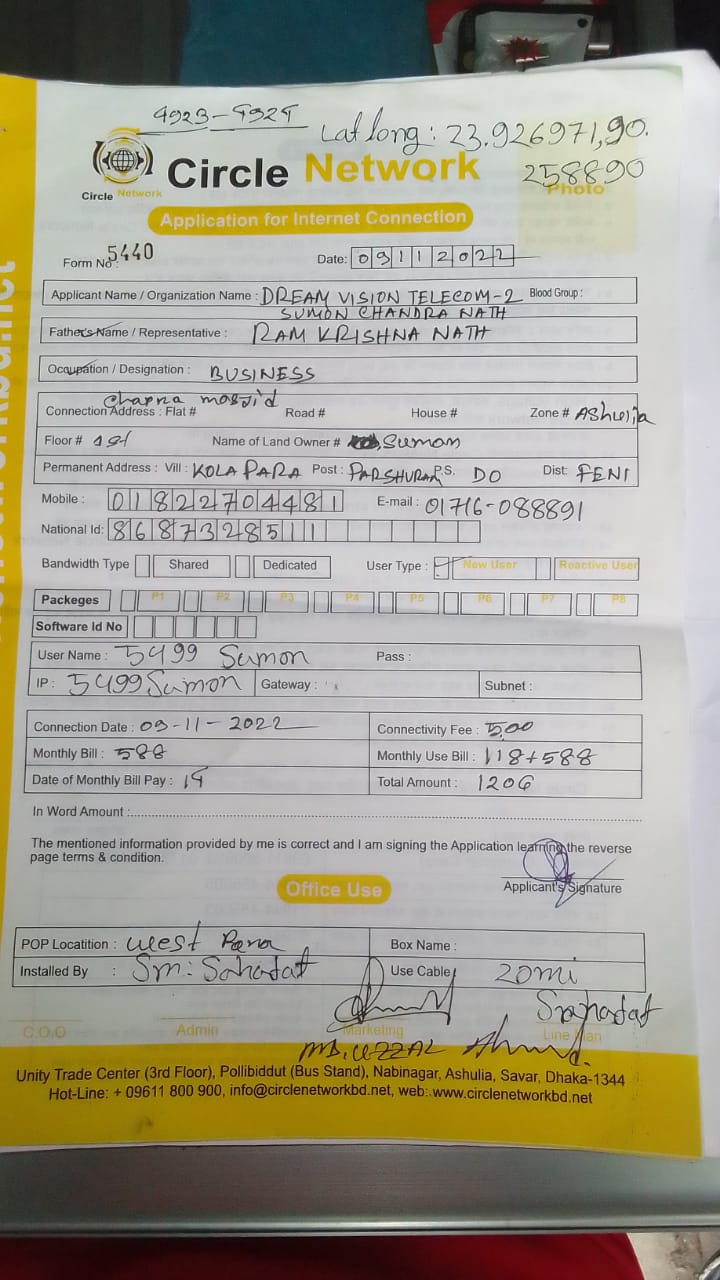 4923-4924
Lat long: 23.926971,90.
258890
Circle Network
Circle Network
Photo
Application for Internet Connection
Form No : 5440
Date: 09112022
Applicant Name / Organization Name : DREAM VISION TELECOM-2 Blood Group :
SUMON CHANDRA NATH
Father's Name / Representative : RAM KRISHNA NATH
Occupation / Designation : BUSINESS
Chapna masjid
Connection Address : Flat # Road # House # Zone # Ashulia
Floor # 1st Name of Land Owner # Sumon
Permanent Address : Vill : KOLA PARA Post : PARSHURAM P.S. DO Dist: FENI
Mobile : 01822704481 E-mail : 01716-088891
National Id: 8687328511
Bandwidth Type Shared Dedicated User Type : New User Reactive User
Packeges P1 P2 P3 P4 P5 P6 P7 P8
Software Id No
User Name : 5499 Sumon Pass :
IP : 5499 Sumon Gateway : Subnet :
Connection Date : 09-11-2022 Connectivity Fee : 500
Monthly Bill : 588 Monthly Use Bill : 118+588
Date of Monthly Bill Pay : Total Amount : 1206
In Word Amount :
The mentioned information provided by me is correct and I am signing the Application learning the reverse
page terms & condition.
Applicant's Signature
Office Use
POP Locatition : West Para Box Name :
Installed By : Sm: Sahadat Use Cable 20mi
C.O.O Admin Marketing Line Man
MD. UZZAL Ahmed.
Unity Trade Center (3rd Floor), Pollibiddut (Bus Stand), Nabinagar, Ashulia, Savar, Dhaka-1344
Hot-Line: + 09611 800 900, info@circlenetworkbd.net, web: www.circlenetworkbd.net